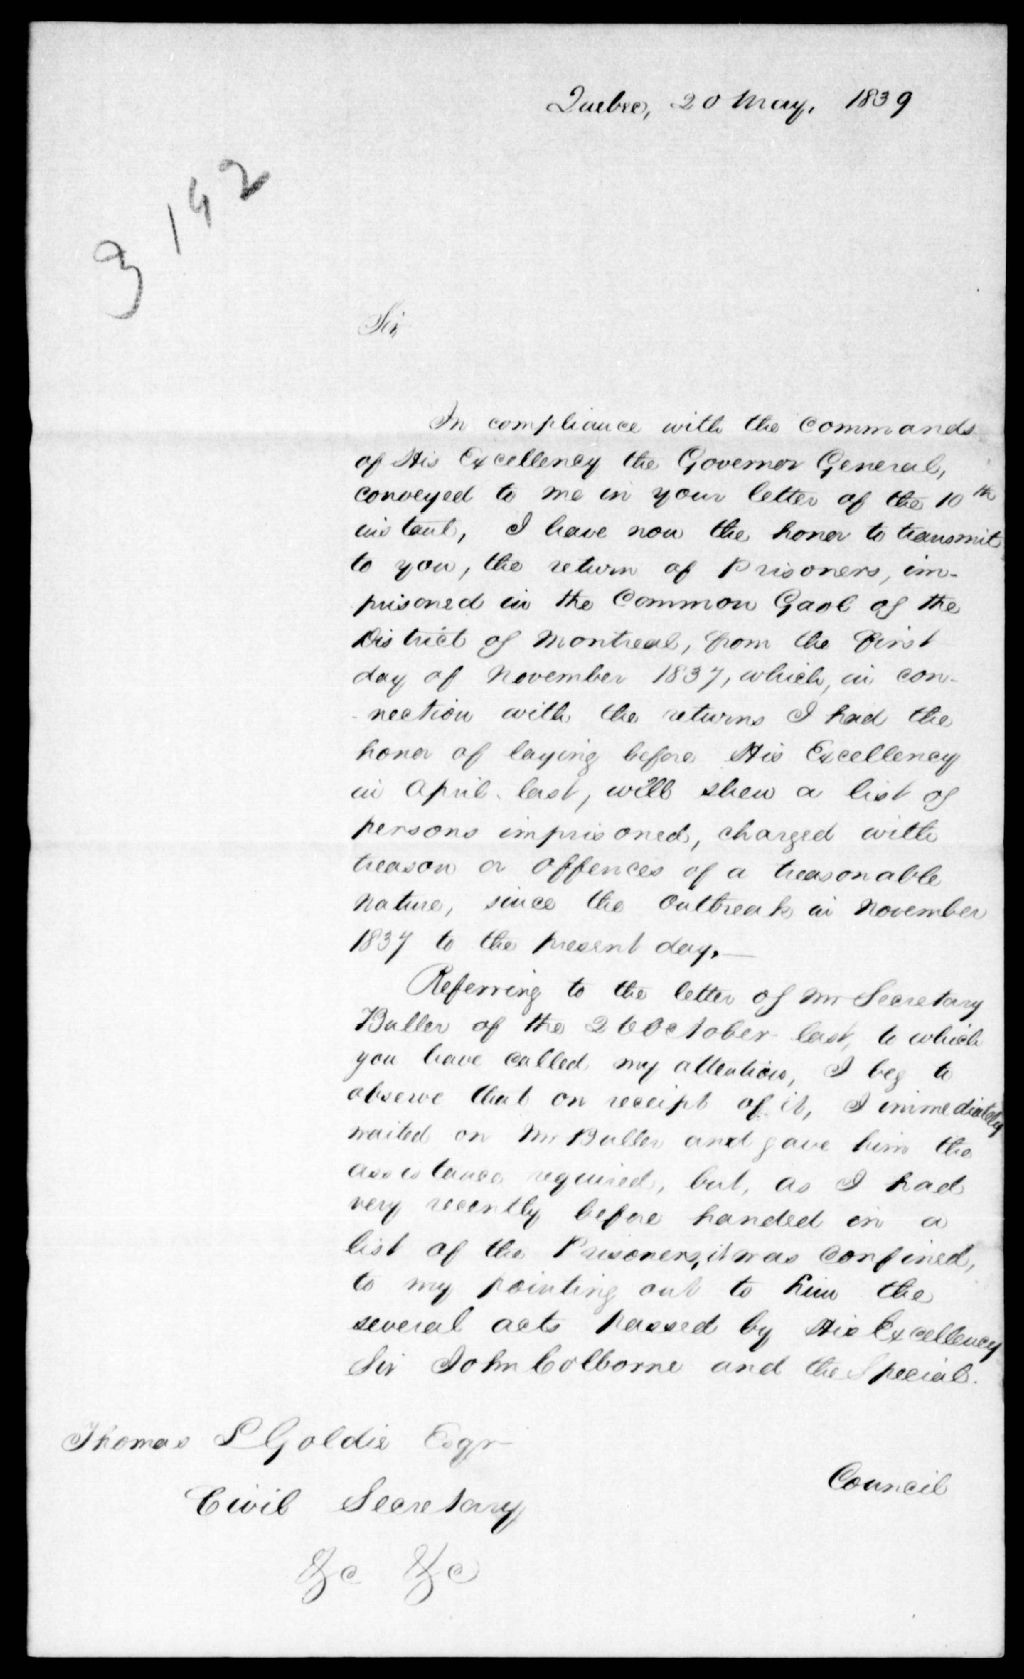 Quebec, 20 May, 1839
3142
Sir,
In compliance with the commands
of His Excellency the Governor General,
conveyed to me in your letter of the 10th
instant, I have now the honor to transmit
to you, the return of Prisoners, im-
prisoned in the Common Gaol of the
District of Montreal, from the first
day of November 1837, which, in con-
-nection with the returns I had the
honor of laying before His Excellency
in April last, will shew a list of
persons imprisoned, charged with
treason or offences of a treasonable
nature, since the outbreak in November
1837 to the present day,—
Referring to the letter of Mr Secretary
Buller of the October last, to which
you have called my attention, I beg to
observe that on receipt of it, I immediately
waited on Mr Buller and gave him the
assistance required, but, as I had
very recently before handed in a
list of the Prisoners, it was confined,
to my pointing out to him the
several acts passed by His Excellency
Sir John Colborne and the Special
Council
Thomas L Goldie Esqr
Civil Secretary
&c &c